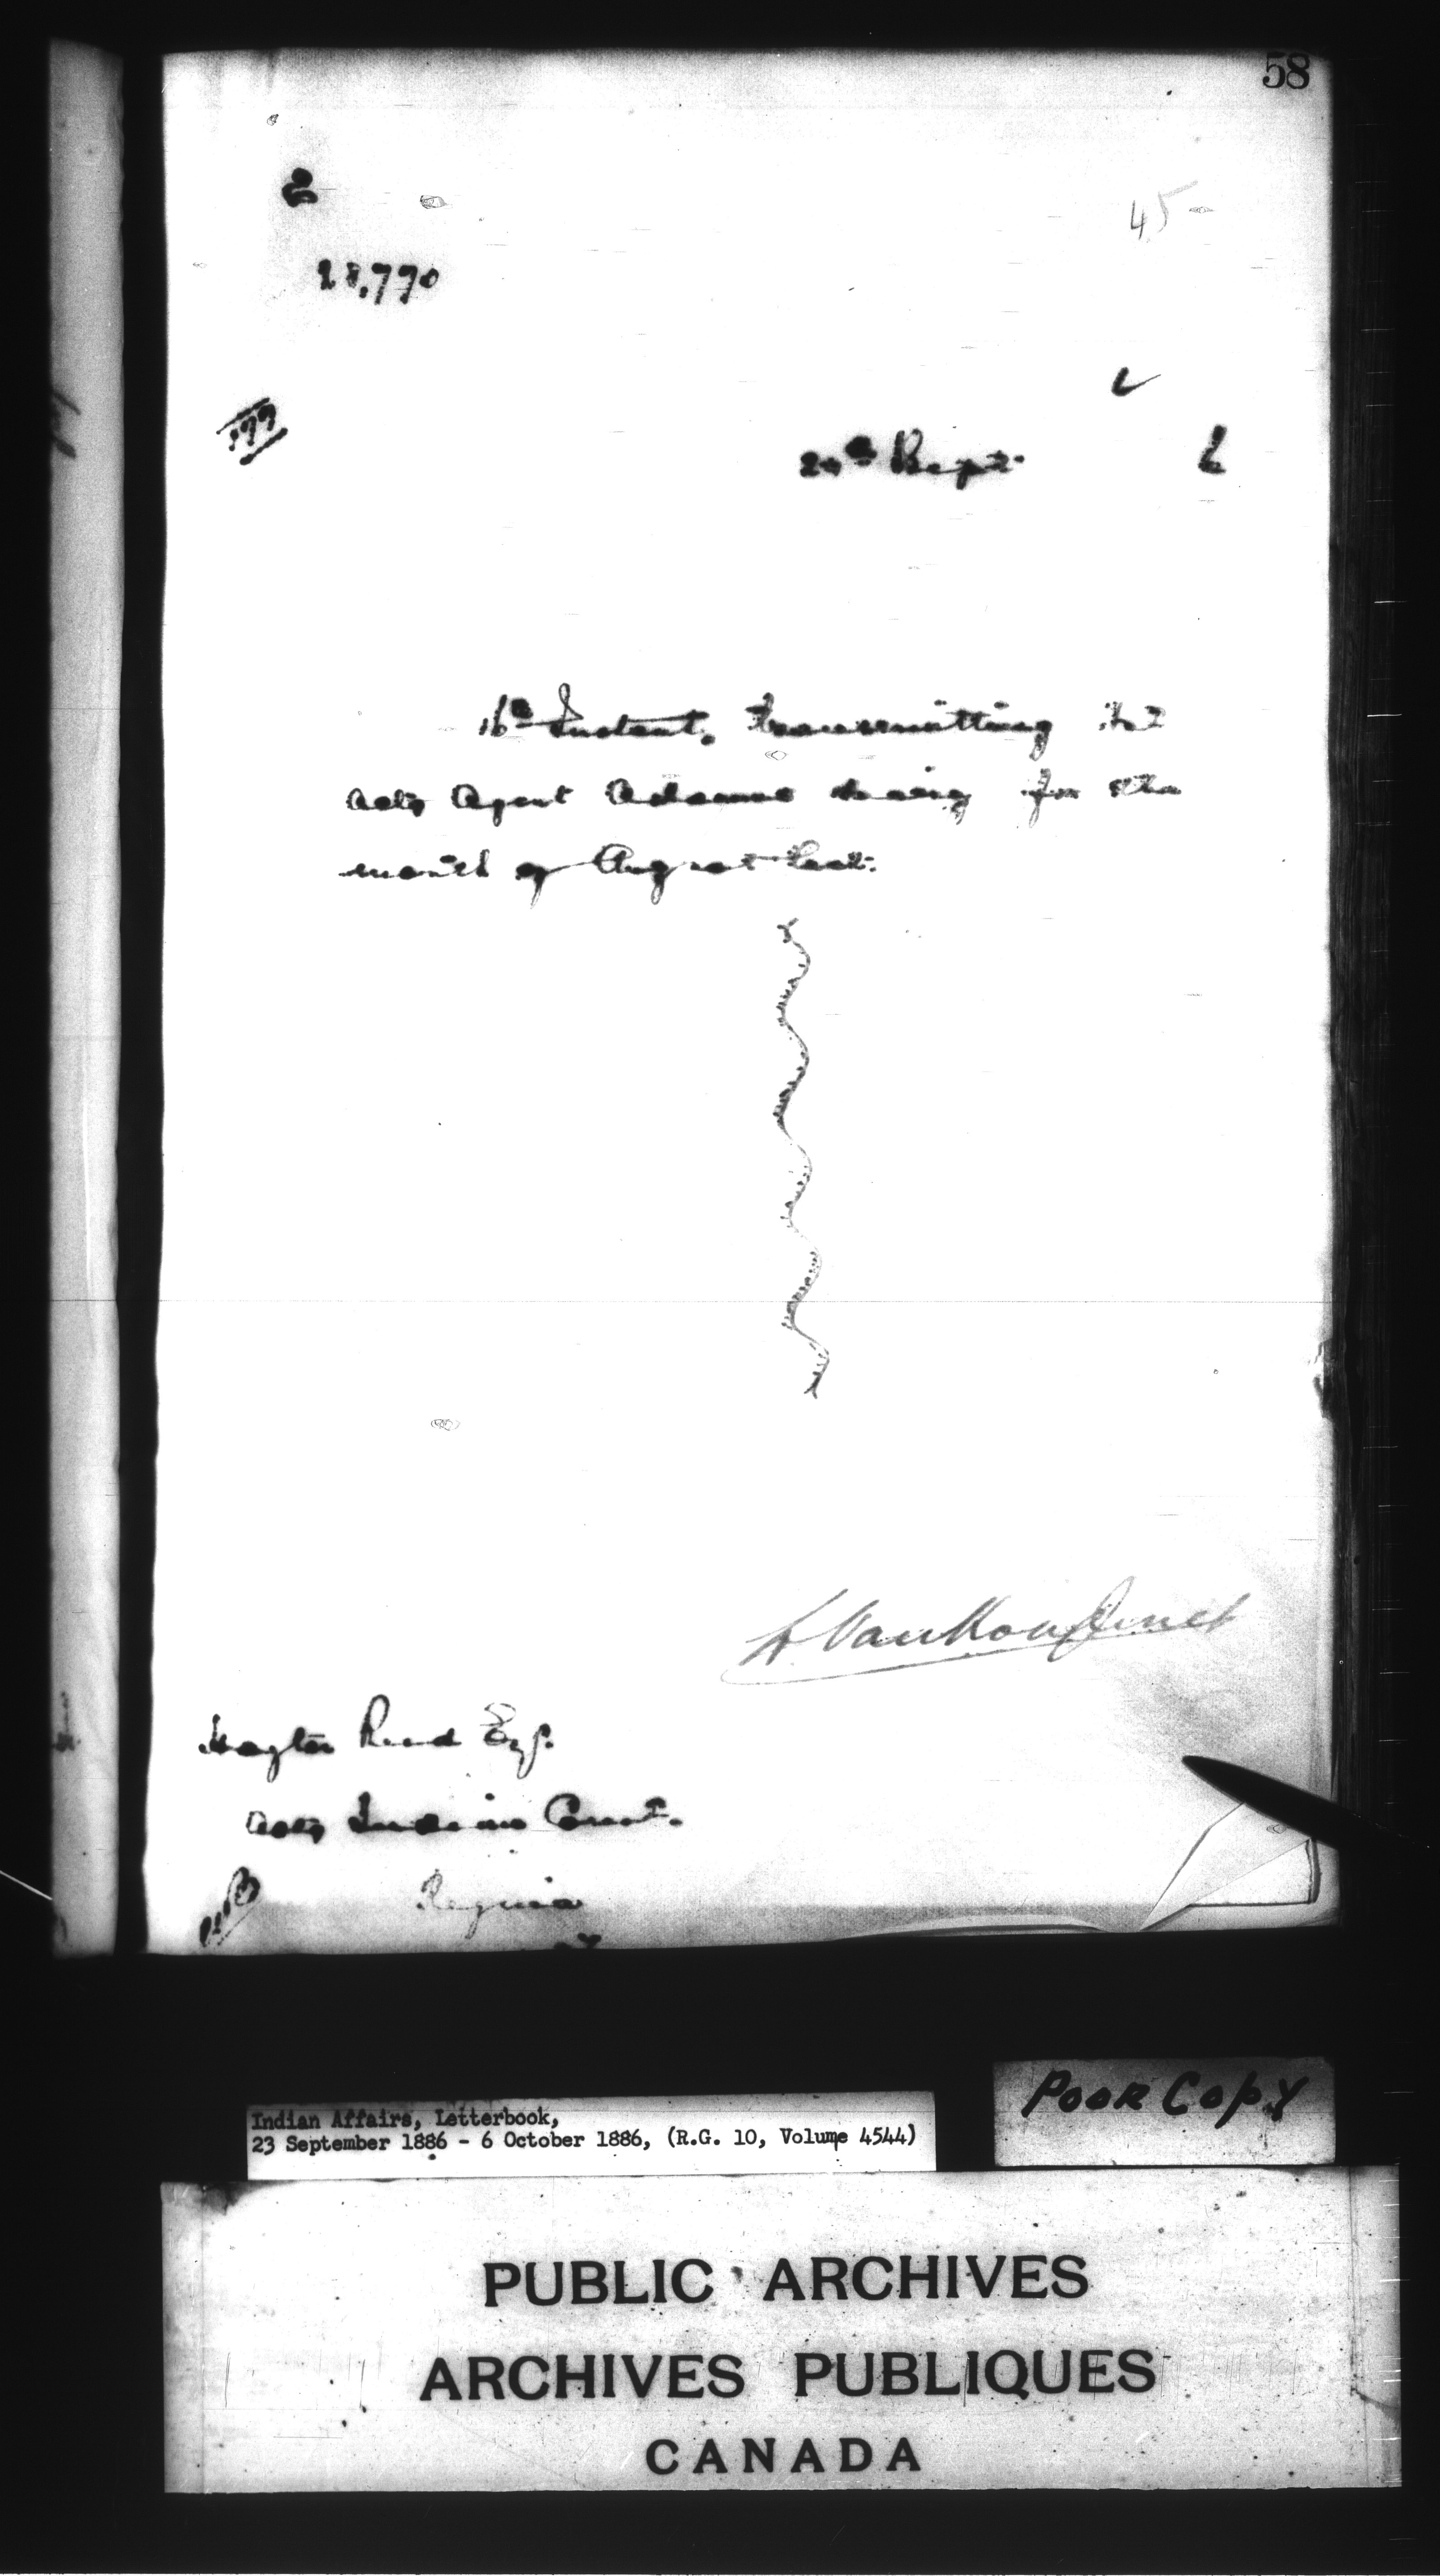 58
45
28,770
Sept. 6
16th Instant, transmitting
actg Agent Adams diary for the
month of August last.
L VanKoughnet
Hayter Reed Esq.
actg Indian Comr.
Regina
Poor Copy
Indian Affairs, Letterbook,
23 September 1886 - 6 October 1886, (R.G. 10, Volume 4544)
PUBLIC ARCHIVES
ARCHIVES PUBLIQUES
CANADA